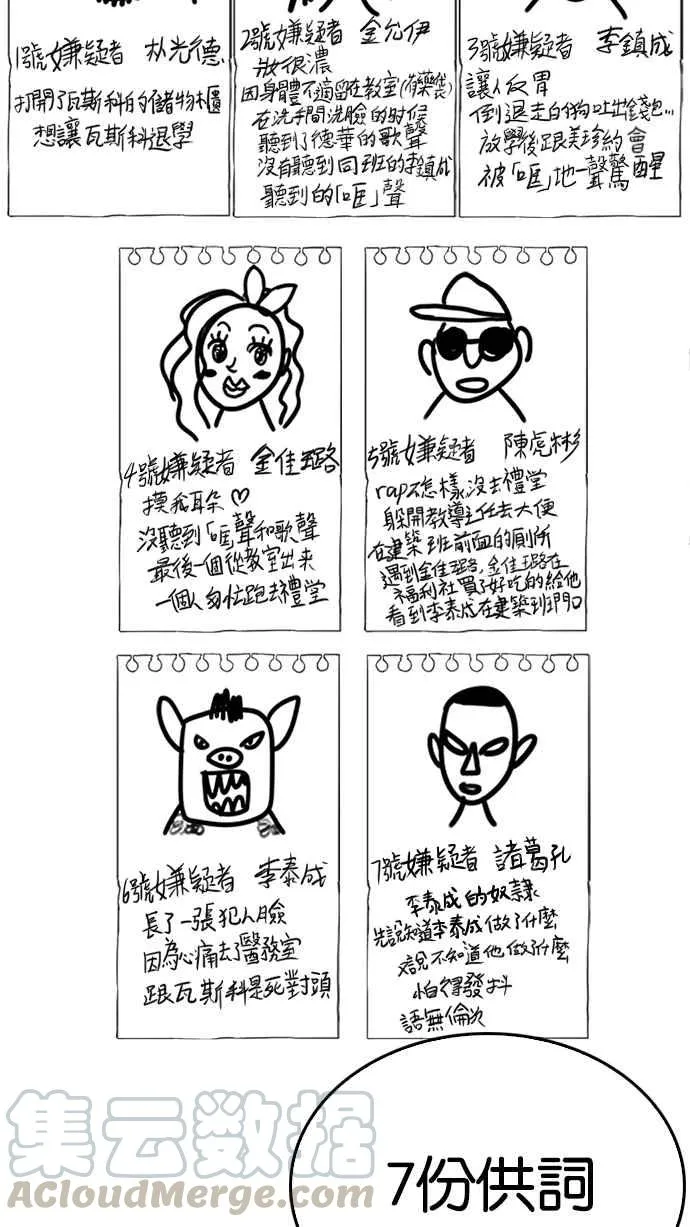 1號嫌疑者 朴光德
打開了瓦斯科的儲物櫃
想讓瓦斯科退學
2號嫌疑者 金允伊
妝很濃
因身體不適留在教室(有藥袋)
在洗手間洗臉的时候
聽到了德華的歌聲
沒有聽到同班的李鎮成
聽到的「哐」聲
3號嫌疑者 李鎮成
讓人反胃
倒退走的狗吐出錢包...
放學後跟美珍約會
被「哐」地一聲驚醒
4號嫌疑者 金佳璐
摸我耳朵♡
沒聽到「哐」聲和歌聲
最後一個從教室出來
一個人匆忙跑去禮堂
5號嫌疑者 陳虎彬
rap不怎樣沒去禮堂
躲開教導主任去大便
在建築班前面的厠所
遇到金佳璐,金佳璐在
福利社買了好吃的給他
看到李泰成在建築班門口
6號嫌疑者 李泰成
長了一張犯人臉
因為心痛去了醫務室
跟瓦斯科是死對頭
7號嫌疑者 諸葛孔
李泰成的奴隸
先說知道李泰成做了什麼
又說不知道他做了什麼
怕得發抖
語無倫次
7份供詞
集云数据
AcloudMerge.com